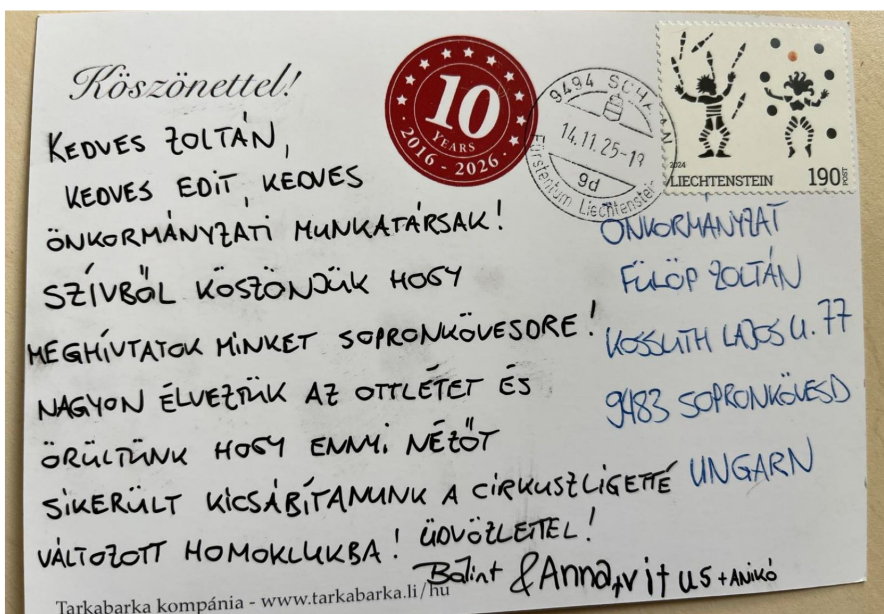 Köszönettel!
10
YEARS
2016 - 2026
9494 SCHAAN
14.11.25-19
9d
Fürstentum Liechtenstein
2024
LIECHTENSTEIN 190 POST
KEDVES ZOLTÁN,
KEDVES EDIT, KEDVES
ÖNKORMÁNYZATI MUNKATÁRSAK!
SZÍVBŐL KÖSZÖNJÜK HOGY
MEGHÍVTATOK MINKET SOPRONKÖVESDRE!
NAGYON ÉLVEZTÜK AZ OTTLÉTET ÉS
ÖRÜLTÜNK HOGY ENNYI NÉZŐT
SIKERÜLT KICSÁBÍTANUNK A CIRKUSZLIGETTÉ
VÁLTOZOTT HOMOKLUKBA! ÜDVÖZLETTEL!
Bálint & Anna + vitus + ANIKÓ
ÖNKORMÁNYZAT
FÜLÖP ZOLTÁN
KOSSUTH LAJOS U. 77
9483 SOPRONKÖVESD
UNGARN
Tarkabarka kompánia - www.tarkabarka.li/hu